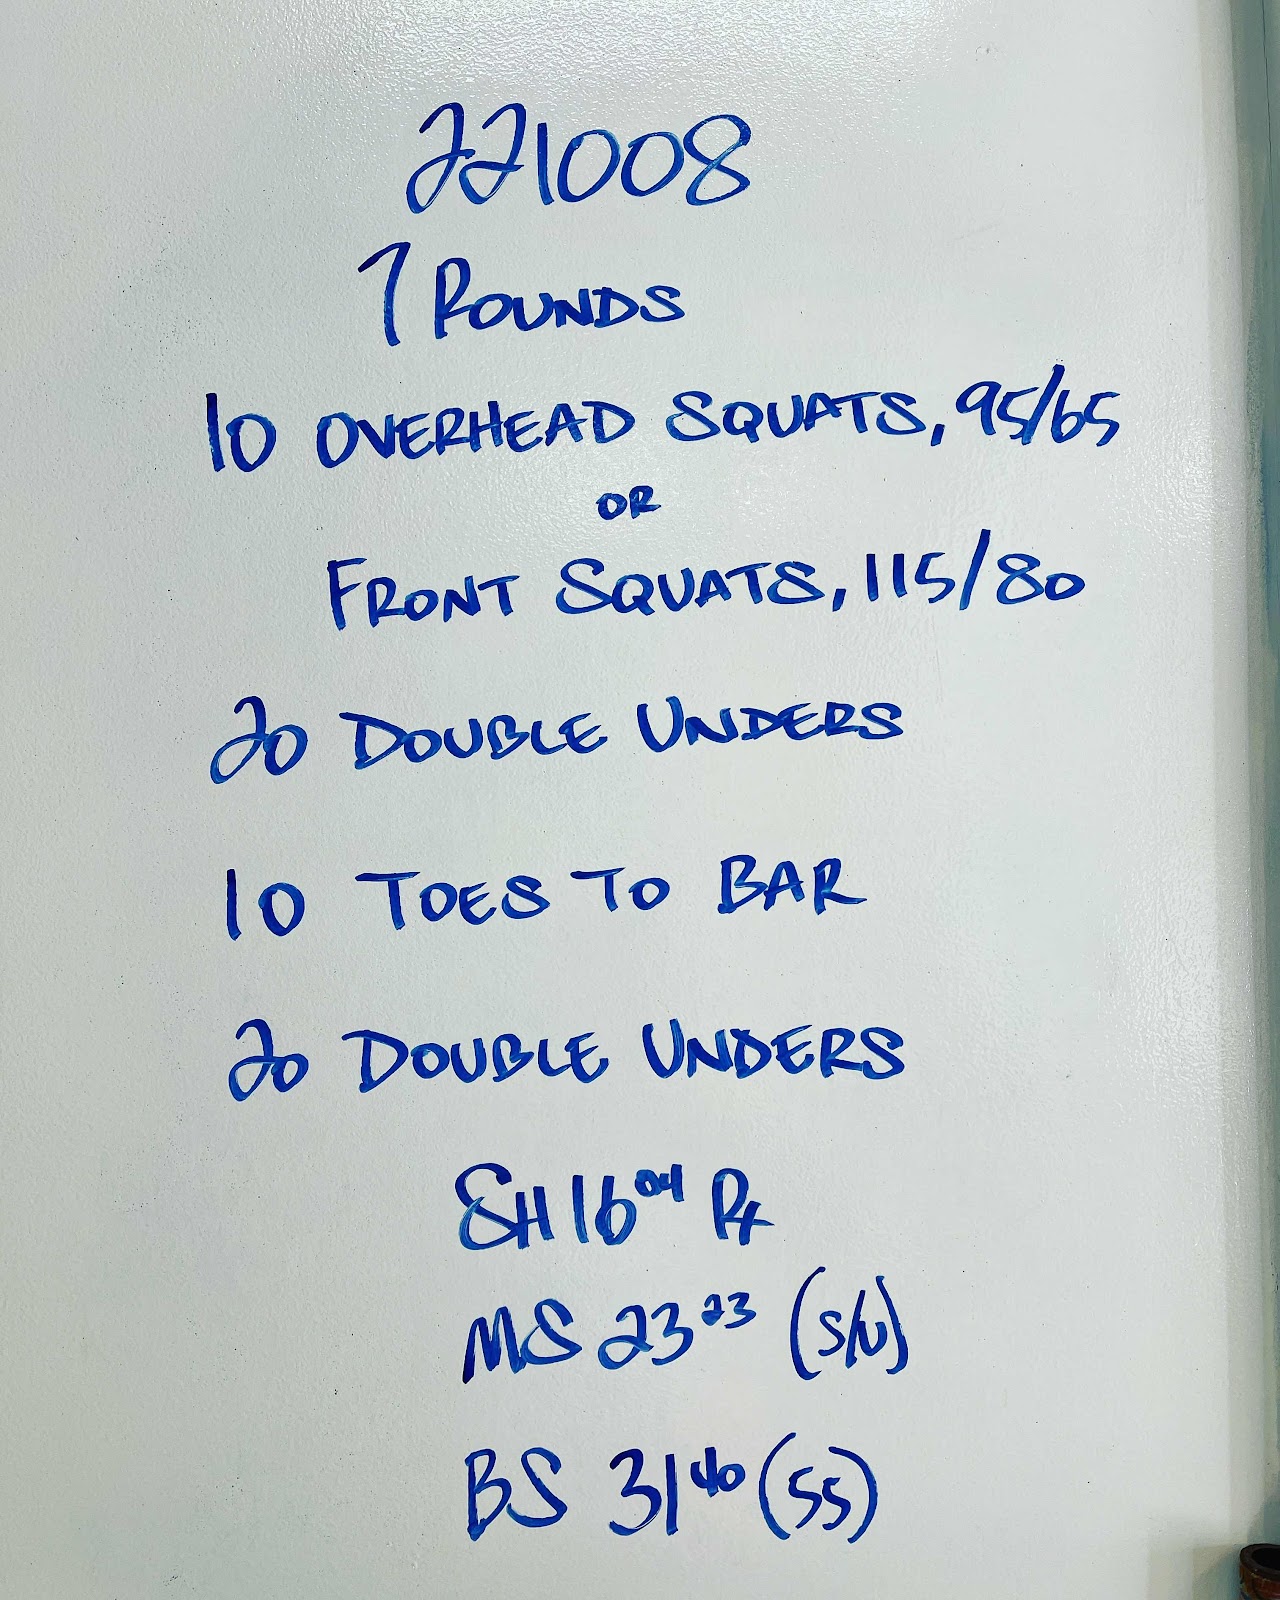 221008
7 ROUNDS
10 OVERHEAD SQUATS, 95/65
OR
FRONT SQUATS, 115/80
20 DOUBLE UNDERS
10 TOES TO BAR
20 DOUBLE UNDERS
SH 16 04 Rx
MS 23 23 (S/U)
BS 31 40 (55)